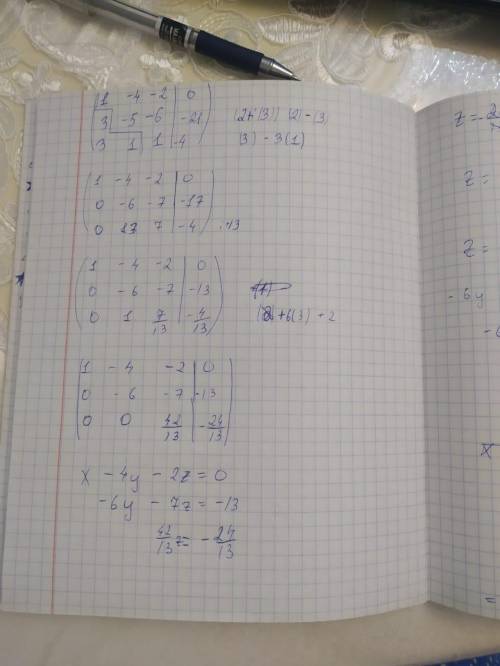 1 -4 -2 | 0
3 -5 -6 | -21
3 1 1 | -4
(2) - (3)
(3) - 3(1)
1 -4 -2 | 0
0 -6 -7 | -17
0 13 7 | -4 :13
1 -4 -2 | 0
0 -6 -7 | -13
0 1 7/13 | -4/13
+6(3) ÷ 2
1 -4 -2 | 0
0 -6 -7 | -13
0 0 42/13 | -24/13
x - 4y - 2z = 0
-6y - 7z = -13
42/13 z = - 24/13
z =
z =
z =
- 6y
x
=